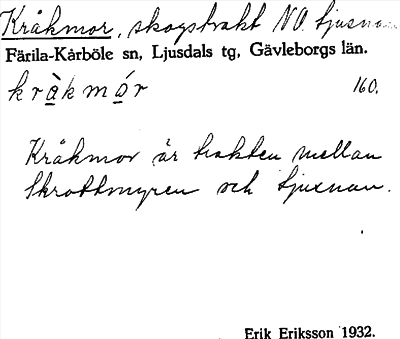 Kråkmor, skogstrakt NO Ljusnan
Färila-Kårböle sn, Ljusdals tg, Gävleborgs län.
kràkmór 160.
Kråkmor är trakten mellan
Skrottmyren och Ljusnan.
Erik Eriksson 1932.